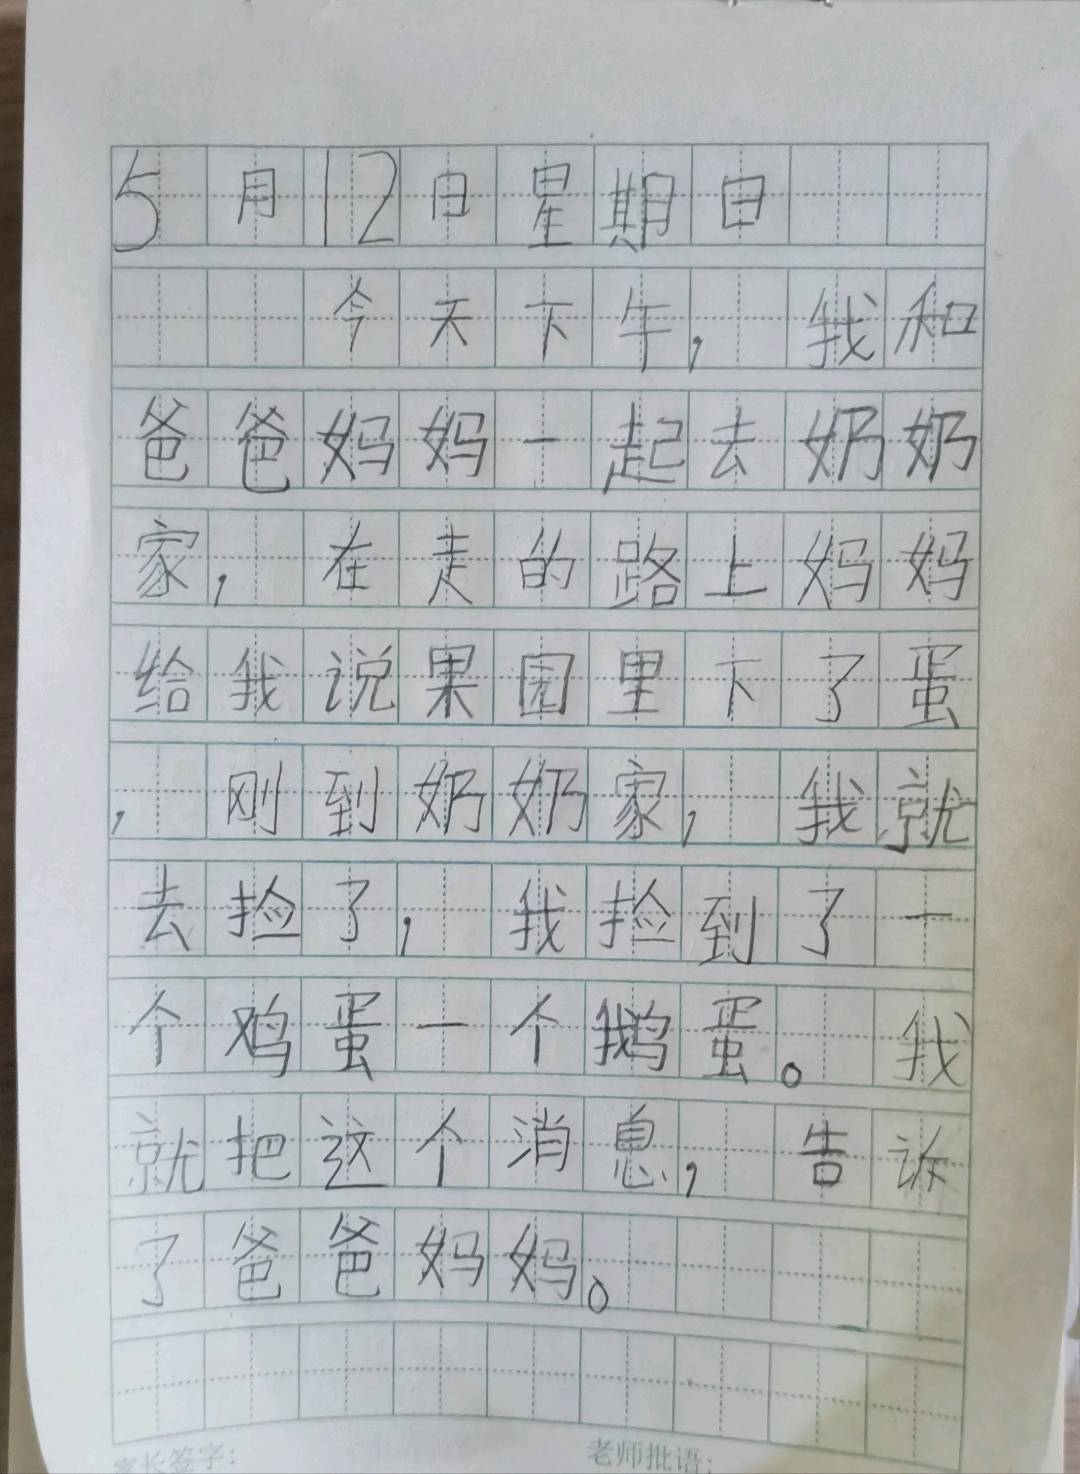 5月12日星期日
今天下午，我和
爸爸妈妈一起去奶奶
家，在走的路上妈妈
给我说果园里下了蛋
，刚到奶奶家，我就
去捡了，我捡到了一
个鸡蛋一个鹅蛋。我
就把这个消息，告诉
了爸爸妈妈。
家长签字： 老师批语：